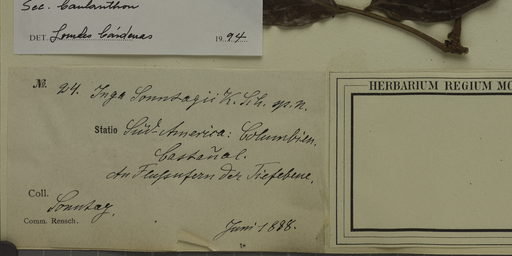 Sec. Caulanthon
DET. Lourdes Cárdenas 1994
No. 24. Inga Sonntagii K. Sch. sp. n.
Statio Süd-America: Columbien.
Castañal.
An Flussufern der Tiefebene.
Coll.
Sonntag.
Comm. Rensch. Juni 1888.
HERBARIUM REGIUM MO